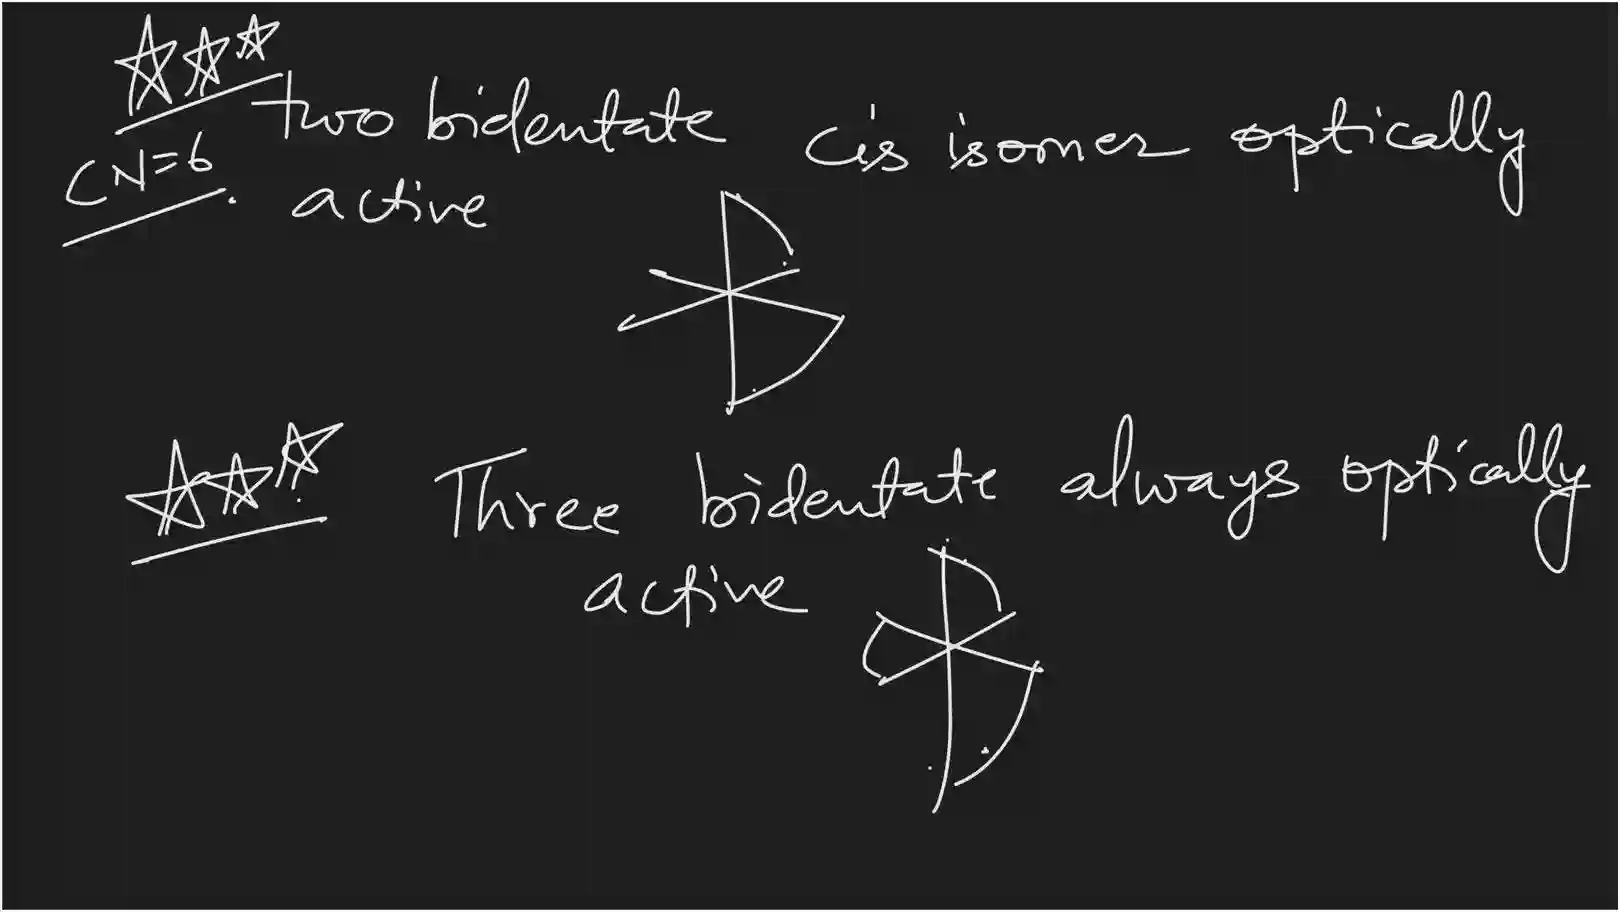 two bidentate cis isomer optically
CN=6. active
Three bidentate always optically
active